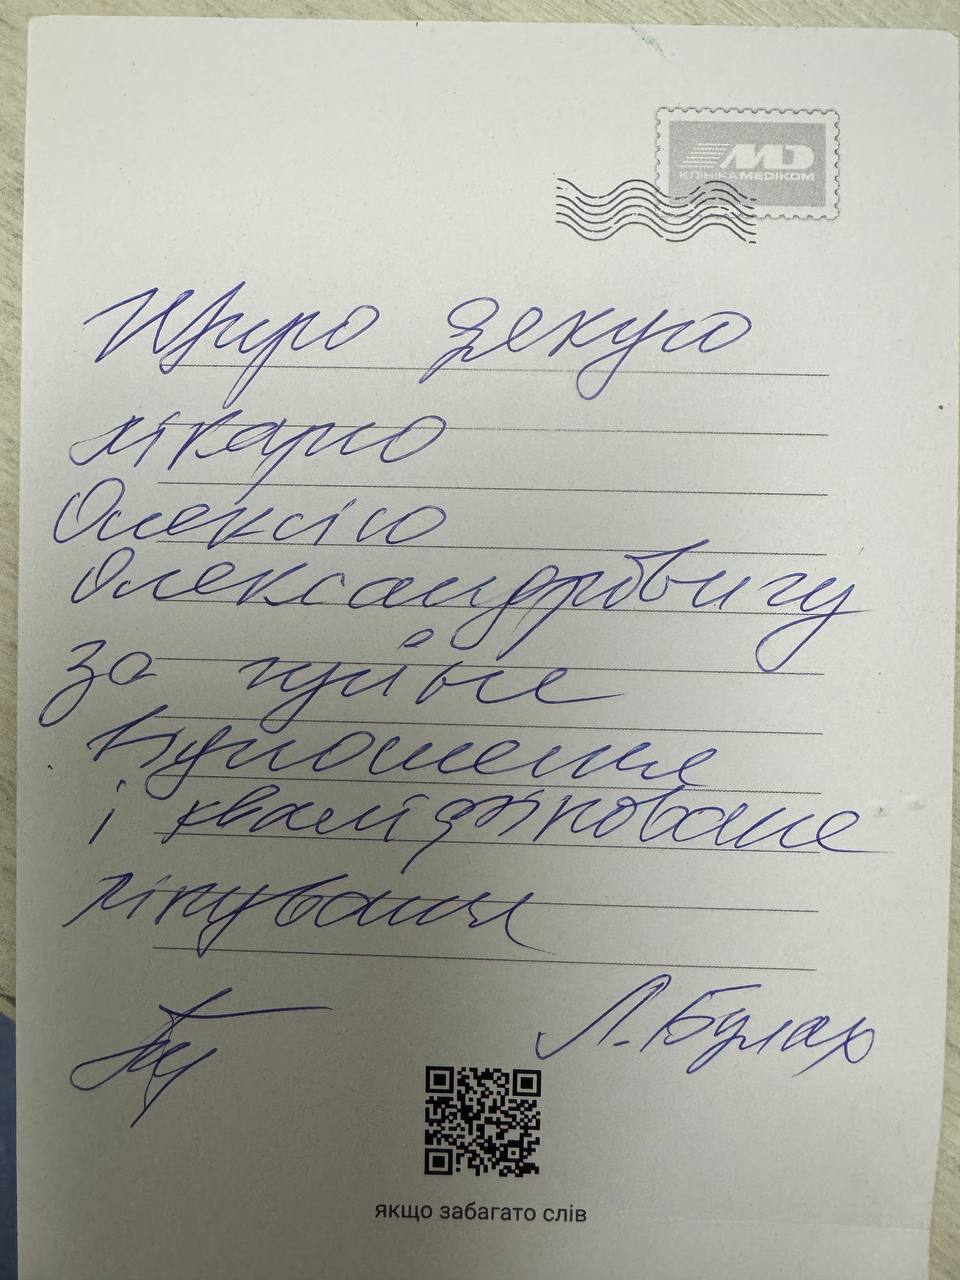 КЛІНІКА MEDIKOM
Щиро дякую
лікарю
Олексію
Олександровичу
за чуйне
відношення
і кваліфіковане
лікування
Л. Булах
якщо забагато слів